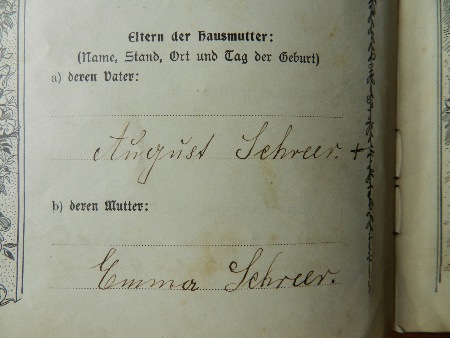 Eltern der Hausmutter:
(Name, Stand, Ort und Tag der Geburt)
a) deren Vater:
August Schreer. +
b) deren Mutter:
Emma Schreer.